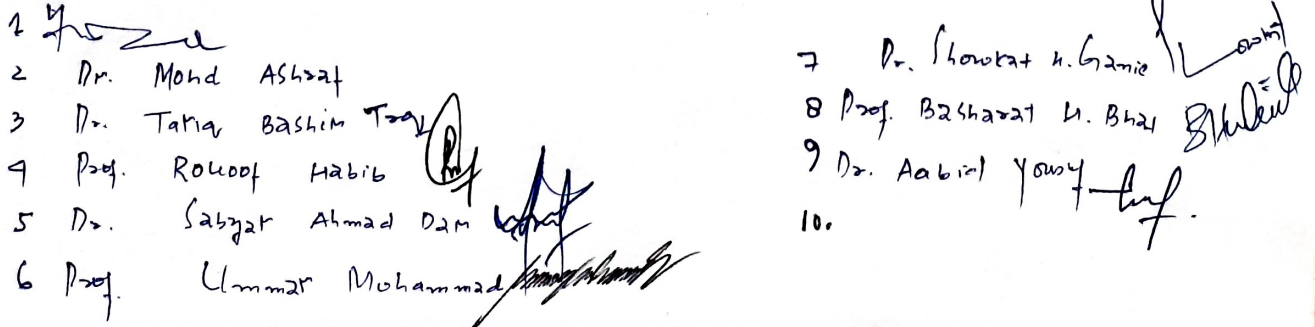 1
2 Dr. Mohd Ashraf
3 Dr. Tariq Bashir
4 Prof. Rouoof Habib
5 Dr. Sabzar Ahmad Dar
6 Prof. Ummar Mohammad
7 Dr. Showkat H. Ganie
8 Prof. Basharat H. Bhat
9 Dr. Aabid Yousuf
10.